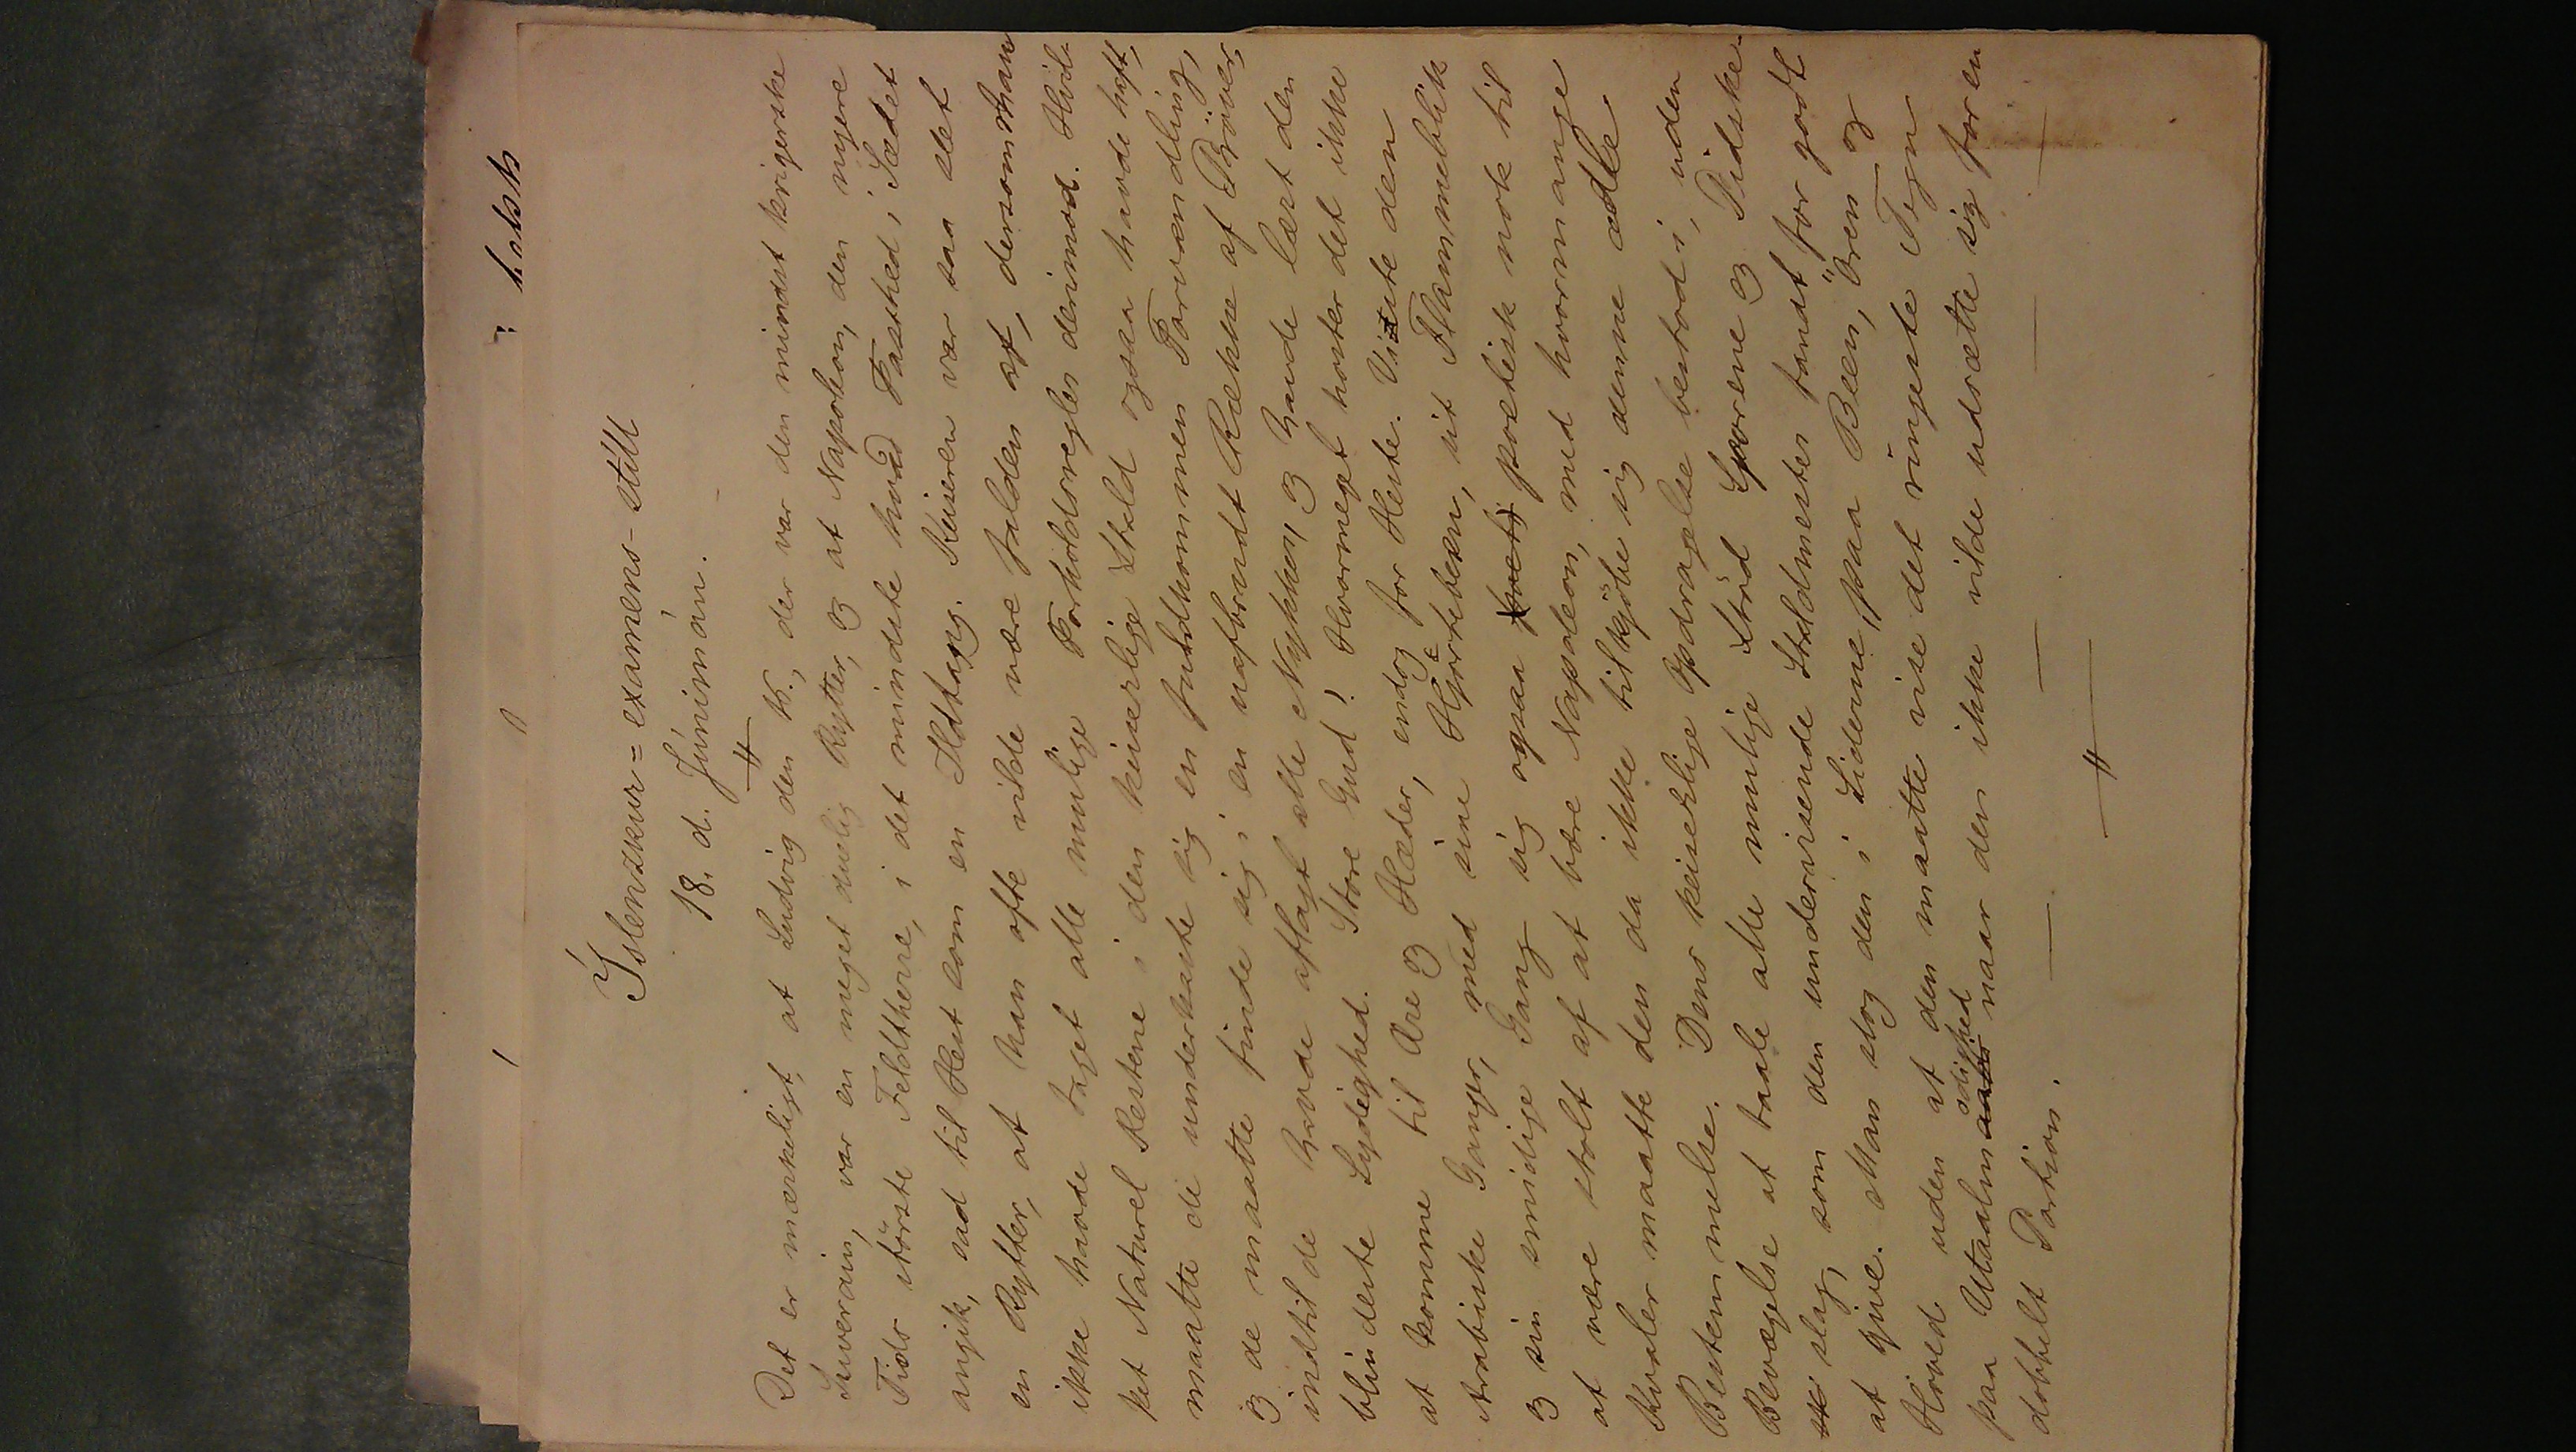 Íslenzkur = examens-stíll
18. d. Júnímán.
Det er mærkeligt, at Ludvig den K., der var den mindst krigerske
Suverain, var en meget duelig Rytter, og at Napoleon, den nyere
Tids störste Feldtherre, i det mindste hvad Fasthed i Sædet
angik, sad til Hest som en Ildtang. Keiseren var saa slet
en Rytter, at han ofte vilde være falden af, dersom man
ikke havde taget alle mulige Forholdsregler derimod. Hvil-
ket Naturel Hestene i den keiserlige Stald ogsaa havde haft,
maatte de underkaste sig en fuldkommen Forvandling,
og de maatte finde sig i en uafbrudt Række af Pröver,
indtil de havde aflagt alle Nykker, og havde lært den
blindeste Lydighed. Store Gud! Hvormeget koster det ikke
at komme til Ære og Hæder, endog for Heste. Viste den
Arabiske Ganger, med sine Hjorteben, sit Flammeblik
og sin smidige Gang sig ogsaa poetisk nok til
at være stolt af at bære Napoleon, med hvormange
Kvaler maatte den da ikke tilkjöbe sig denne ædle
Bestemmelse. Dens keiserlige Opdragelse bestod i, uden
Bevægelse at taale alle mulige Stöd Sporene og Pidske-
slag, som den underviisende Staldmester fandt for godt
at give. Man slog den i Siderne, paa Been, Ören og
Hoved uden at den maatte vise det ringeste Tegn
paa Utaalmodighed naar den ikke vilde udsætte sig for en
dobbelt Portion.